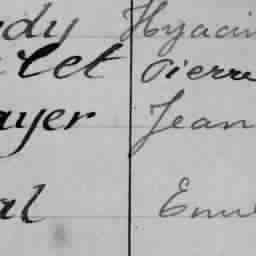 dy Hyacin
let Pierre
ayer Jean
al Emi